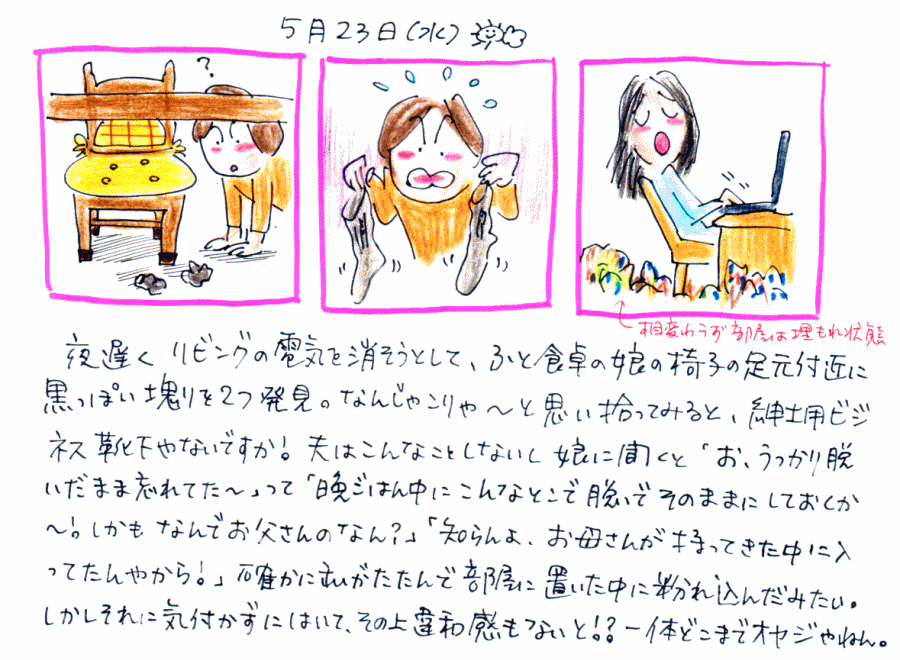 5月23日(水)
?
相変わらず部屋は埋もれ状態
夜遅くリビングの電気を消そうとして、ふと食卓の娘の椅子の足元付近に
黒っぽい塊りを2つ発見。なんじゃこりゃ〜と思い拾ってみると、紳士用ビジ
ネス靴下やないですか!夫はこんなことしないし娘に聞くと「お、うっかり脱
いだまま忘れてた〜」って「晩ごはん中にこんなとこで脱いでそのままにしておくか
〜!しかもなんでお父さんのなん?」「知らんよ、お母さんが持ってきた中に入
ってたんやから!」確かに私がたたんで部屋に置いた中に紛れ込んだみたい。
しかしそれに気付かずにはいて、その上違和感もないと!?一体どこまでオヤジやねん。